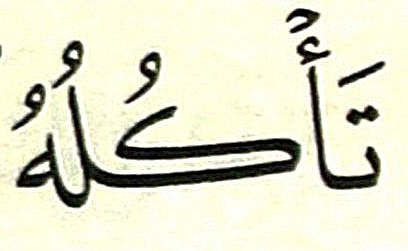 تَأْكُلُهُ